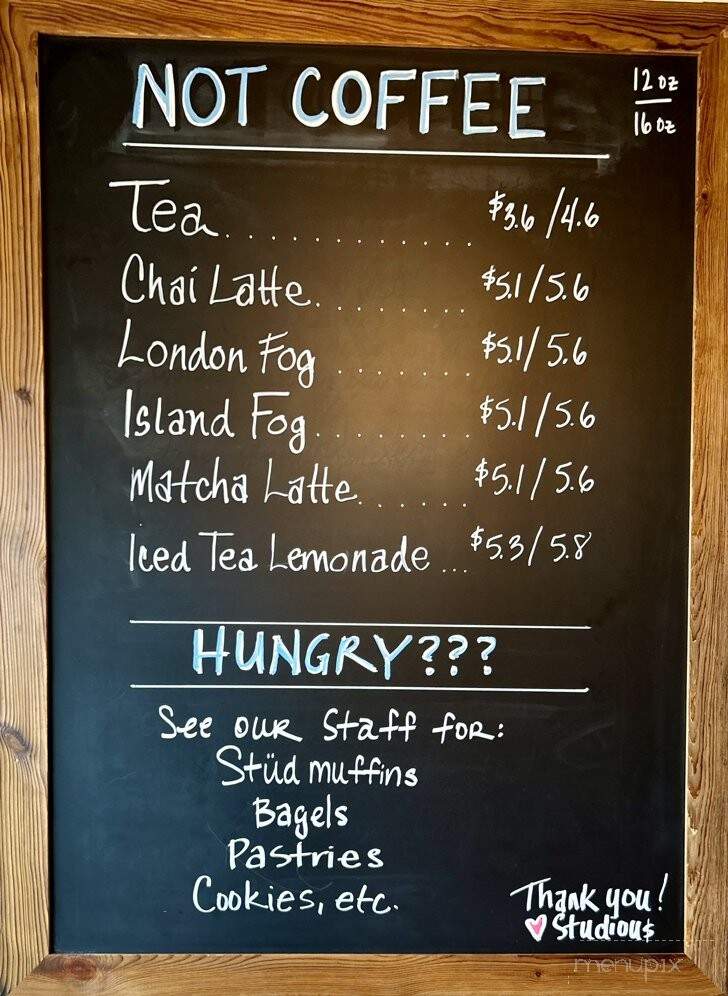 NOT COFFEE
12 oz
16 oz
Tea............. $3.6 / 4.6
Chai Latte........ $5.1 / 5.6
London Fog ....... $5.1 / 5.6
Island Fog........ $5.1 / 5.6
Matcha Latte...... $5.1 / 5.6
Iced Tea Lemonade ... $5.3 / 5.8
HUNGRY???
See our Staff for:
Stüd muffins
Bagels
Pastries
Cookies, etc.
Thank you!
♥ Studiou$
menupix